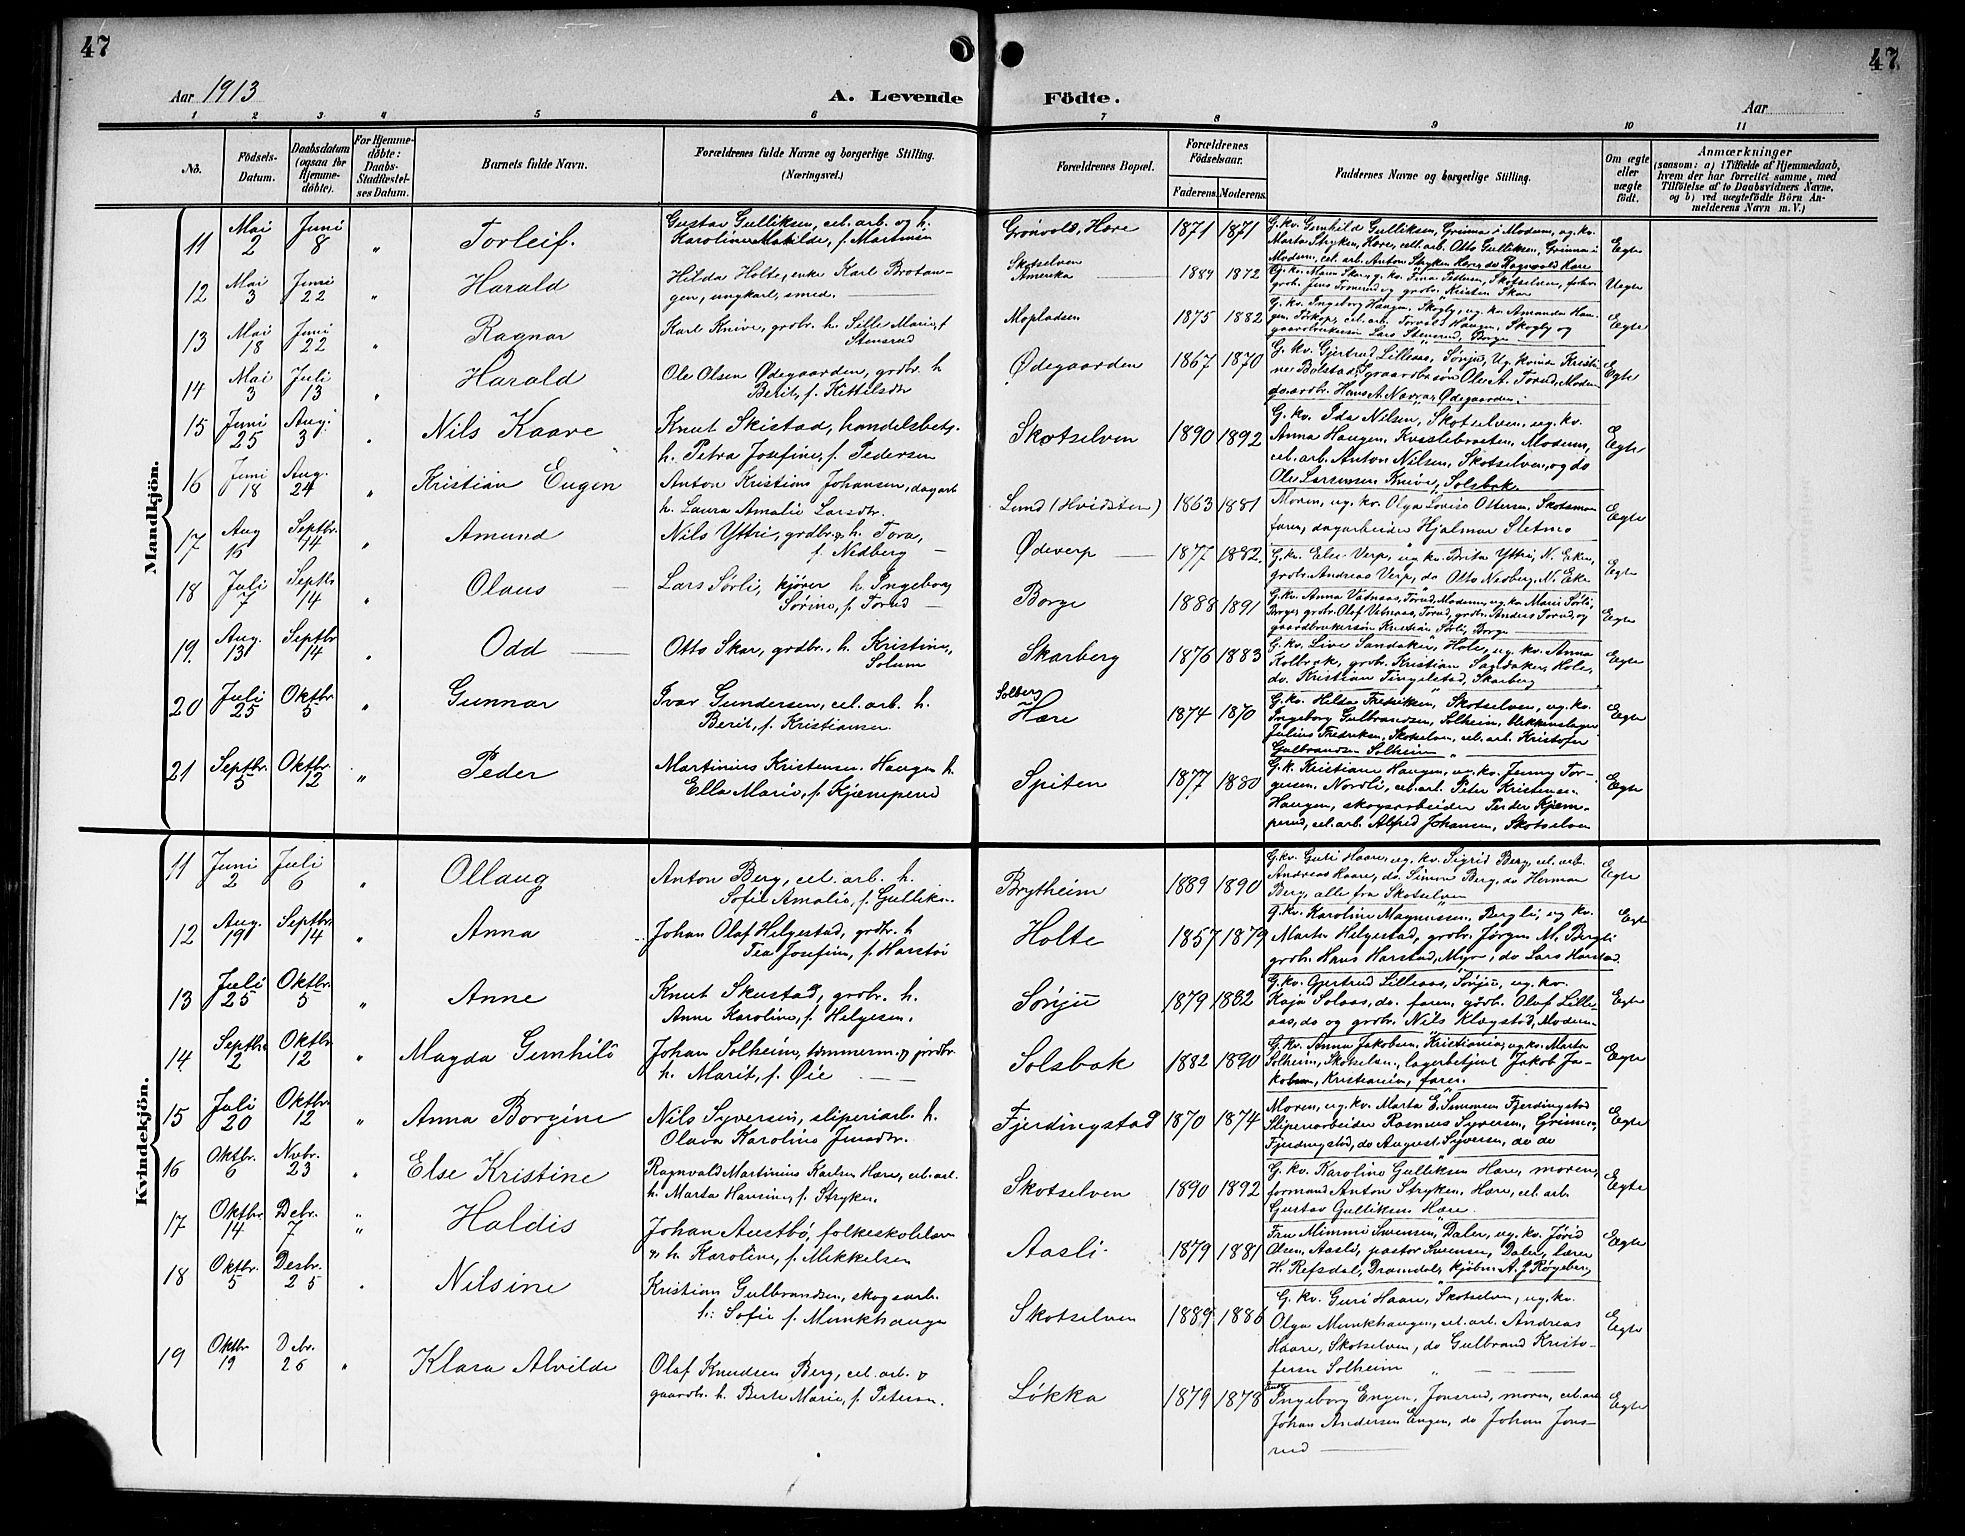 47
47
Aar 1913
A. Levende
Födte.
Aar
1 2 3 4 5 6 7 8 9 10 11
No.
Födsels-Datum.
Daabsdatum (ogsaa for Hjemme-døbte).
For Hjemme-døbte: Daabs-Stadfæstel-ses Datum.
Barnets fulde Navn.
Forældrenes fulde Navne og borgerlige Stilling. (Næringsvei.)
Forældrenes Bopæl.
Forældrenes Födselsaar.
Faderens. Moderens.
Faddernes Navne og borgerlige Stilling.
Om ægte eller uægte födt.
Anmærkninger
(saasom: a) i Tilfælde af Hjemmedaab, hvem der har forrettet samme, med Tilföielse af to Daabsvidners Navne, og b) ved uægtefödte Börn Anmelderens Navn m. V.)
Mandkjön.
11 Mai 2 Juni 8 " Torleif. Gustav Gulliksen, cel. arb. og h. Karoline Matilde, f. Martinsen Grønvold, Hære 1871 1871 G. kv. Gunhild Gulliksen, Grinna i Modum, ug. kv. Marta Stryken, Hære, cell. arb. Otto Gulliksen, Grinna i Modum, cel. arb. Anton Stryken Hære, do Ragnvald Hære Egte
12 Mai 3 Juni 22 " Harald Hilda Holte, enke Karl Brotangen, ungkarl, smed. Skotselven Amerika 1884 1872 Uegte
13 Mai 18 Juni 22 " Ragnar Karl Knive, grdbr. h. Sille Marie, f Stensrud Mopladsen 1875 1882 G. kv. Ingeborg Haugen, Skogly, ug. kv. Amanda Haugen, cel. arb. Torvald Haugen, Skogly og gaardbrukersøn Lars Stensrud, Borge Egte
14 Mai 3 Juli 13 " Harald Ole Olsen Ødegaarden, grdbr. h Berit, f. Kittilsdtr Ødegaarden 1867 1870 G. kv. Gjertrud Lilleaas, Sønju, Ug. kvinde Kristine Bolstad, gaardbr.søn Ole A. Torud, Modum gaardbr. Hans A. Narra, Ødegaarden. Egte
15 Juni 25 Aug. 3 " Nils Kaare Knut Skistad, handelsbetj. h. Petra Josefine, f. Pedersen Skotselven 1890 1892 G. kv. Ida Nilsen, Skotselven, ug. kv. Anna Haugen, Kvislebraaten, Modum, cel. arb. Anton Nilsen, Skotselven, og do Ole Larsensen Knive, Solsbok. Egte
16 Juni 18 Aug. 24 " Kristian Eugen Anton Kristians Johansen, dagarb h. Laura Amalie Larsdtr. Lund (Hvidsten) 1863 1881 Moren, ug. kv. Olga Lovise Ottersen, Skotsmoen faren, dagarbeider Hjalmar Sletmo Egte
17 Aug 16 Septbr. 14 " Amund Nils Yttri, grdbr. og h. Tora, f. Nedberg Ødeverp 1877 1882 G. kv. Else Verp, ug. kv. Brita Yttri, N. Eker, grdbr. Andreas Verp, do Otto Nedberg, N. Eker Egte
18 Juli 7 Septbr 14 " Olaus Lars Sørli, kjører h. Ingeborg Sørine, f. Torud Borge 1888 1891 G. kv. Anna Vatnaas, Torud, Modum, ug. kv Marie Sørli, Borge, grdbr. Olaf Vatnaas, Torud, grdbr. Anders Torud, og gaardbrukersøn Kristian Sørli, Borge Egte
19. Aug. 13 Septbr 14 " Odd Otto Skar, grdbr., h. Kristine, Solum Skarberg 1876 1883 G. kv. Live Sandaker, Hole, ug. kv. Anna Kolbrek, grdbr. Kristian Sandaker, Hole, do. Kristian Tingelstad, Skarberg Egte
20 Juli 25 Oktbr 5 " Gunnar Ivar Gundersen, cel. arb. h. Berit, f. Kristiansen Solberg Hære 1874 1870 G. kv. Hilda Fredriksen, Skotselven, ug. kv. Ingeborg Gulbrandsen, Solheim, blikkenslager Julius Fredriksen, Skotselven, cel. arb. Kristofer Gulbrandsen Solheim Egte
21 Septbr. 5 Oktbr. 12 " Peder Martinius Kristensen Haugen h. Ella Marie, f. Kjæmperud Spiten 1877 1880 G. k. Kristiane Haugen, ug. kv. Jenny Torgersen, Nordli, cel. arb. Peter Kristensen Haugen, skogsarbeider Peder Kjæmperud, cel. arb. Alfred Johansen, Skotselven Egte
Kvindekjön.
11 Juni 2 Juli 6 " Ollaug Anton Berg, cel. arb. h. Sofie Amalie, f. Gulliksn. Brytheim 1889 1890 G. kv. Guri Haare, ug. kv. Sigrid Berg, cel. arb. Andreas Haare, do. Simon Berg, do Herman Berg, alle fra Skotselven Egte
12 Aug. 19 Septbr. 14 " Anna Johan Olaf Helgestad, grdbr. h Tea Josefine, f. Harstøi Holte 1857 1879 G. kv. Karoline Magnussen, Bergli, ug kv. Marta Helgestad, grdbr. Jørgen M. Bergli grdbr. Hans Harstad, Myr, do Lars Harstad. Egte
13 Juli 25 Oktbr. 5 " Anne Knut Skustad, grdbr. h. Anne Karoline, f. Helgesen. Sønju 1879 1882 G. kv. Gjertrud Lilleaas, Sønju, ug. kv. Kaja Solaas, do. faren, gdbr. Olaf Lilleaas, do og grdbr. Nils Klægstad, Modum Egte
14 Septbr 2 Oktbr 12 " Magda Gunhild Johan Solheim, tømmerm. & jordbr. h. Marit, f. Øie Solsbok 1882 1890 G. kv. Anna Jakobsen, Kristiania, ug. kv. Marta Solheim, Skotselven, lagerbetjent Jakob Jakobsen, Kristiania, faren. Egte
15 Juli 20 Oktbr. 12 " Anna Borgine Nils Syversen, sliperiarb. h. Olava Karoline Jensdtr. Fjerdingstad 1870 1874 Moren, ug. kv. Marta E. Simonsen Fjerdingstad Sliperiarbeider Rasmus Syversen, Grinna, Fjerdingstad, do August Syversen, do do Egte
16 Oktbr. 6 Novbr. 23 " Else Kristine Ragnvald Martinius Karlsen Hære, cel. arb. h. Marta Hansine, f. Stryken. Skotselven 1890 1892 G. kv. Karoline Gulliksen Hære, moren, formand Anton Stryken, Hære, cel. arb. Gustav Gulliksen Hære. Egte
17 Oktbr. 14 Debr. 7 " Haldis Johan Austbø, folkeskolelærer & h. Karoline, f. Mikkelsen Aasli. 1879 1881 Fru Mimmi Svensen, Daler, ug. kv. Jørid Olsen, Aasli, pastor Svensen, Daler, lærer H. Refsdal, Dramdal, kjøbm A. J Røgeberg, Egte
18 Oktbr. 5 Desbr. 25 " Nilsine Kristian Gulbrandsen, skogsarb. h. Sofie f. Munkhaugen Skotselven 1889 1886 G. kv. Guri Haare, Skotselven, ug. kv. Olga Munkhaugen, cel. arb. Andreas Haare, Skotselven, do Gulbrand Kristofersen Solheim Egte
19 Oktbr 19 Debr. 26 " Klara Alvilde Olaf Knudsen Berg, cel. arb. & gaardbr. h. Berte Marie, f. Petersen. Løkka 1879 1878 Ingeborg Engen, Jonsrud, moren, cel. arb Johan Andersen Engen, do Johan Jonsrud Egte